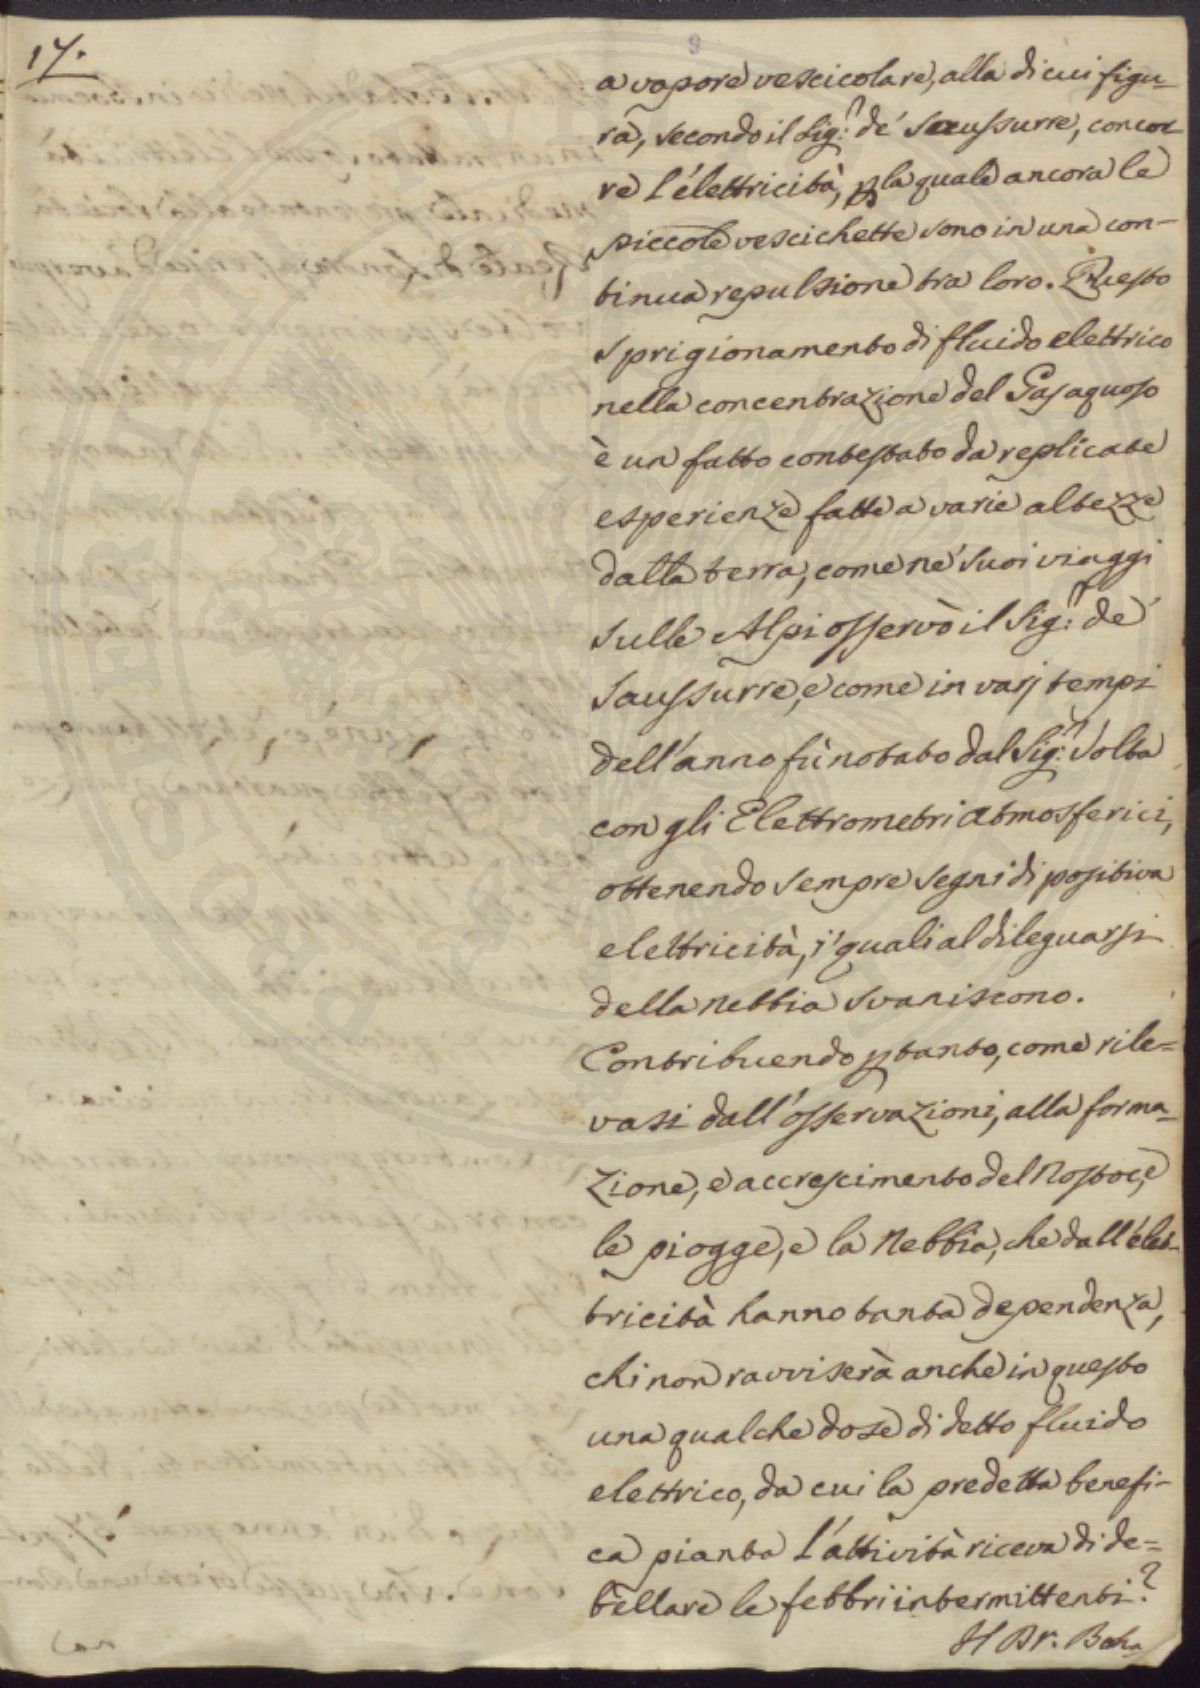 17.
9
a vapore vescicolare, alla di cui figu-
ra, secondo il Sig:r de' Saussurre, concor
re l'élettricità, p la quale ancora le
piccole vescichette sono in una con-
tinua repulsione tra loro. Questo
sprigionamento di fluido elettrico
nella concentrazione del Gas aquoso
è un fatto contestato da replicate
esperienze fatte a varie altezze
dalla terra, come ne' suoi viaggi
sulle Alpi osservò il Sig:r de'
Saussurre, e come in varj tempi
dell'anno fù notato dal Sig:r Volta
con gli Elettrometri atmosferici,
ottenendo sempre segni di positiva
elettricità, i' quali al dileguarsi
della nebbia svaniscono.
Contribuendo ptanto, come rile=
vasi dall'osservazioni, alla forma-
zione, e accrescimento del Nostoc, e
le piogge, e la Nebbia, che dall'élet-
tricità hanno tanta dependenza,
chi non ravviserà anche in questo
una qualche dose di detto fluido
elettrico, da cui la predetta benefi-
ca pianta l'attività riceva di de=
bellare le febbri intermittenti?
Il Dr.